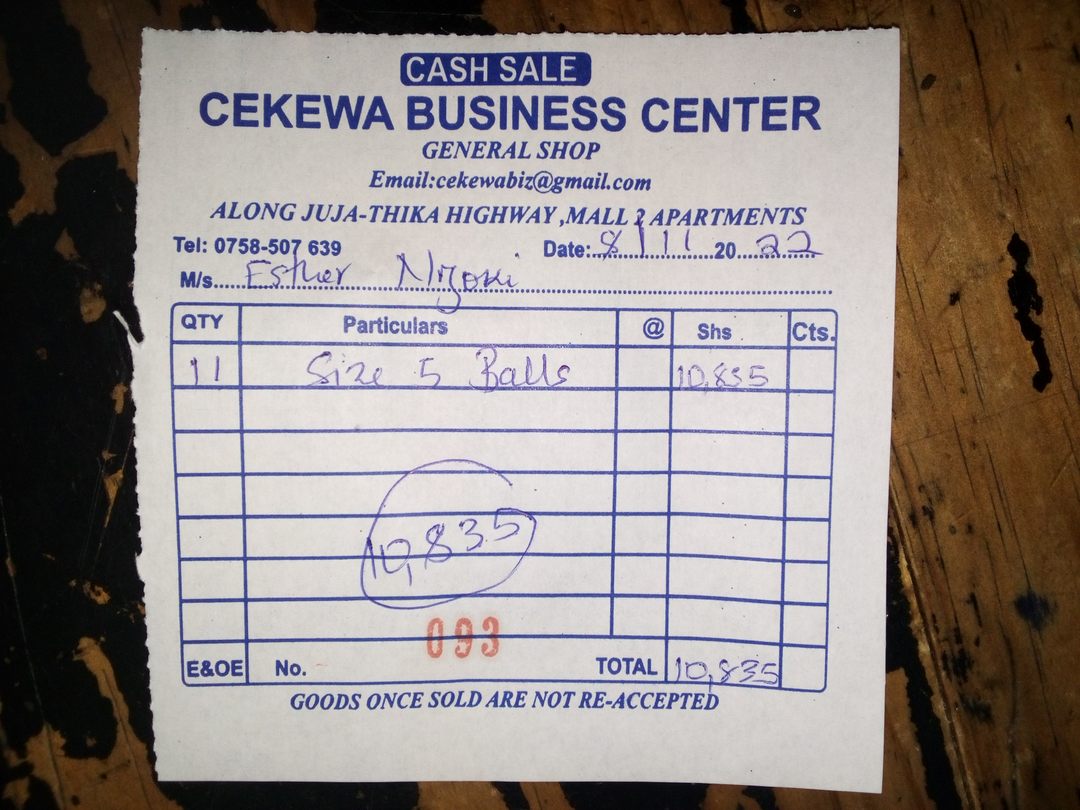 CASH SALE
CEKEWA BUSINESS CENTER
GENERAL SHOP
Email:cekewabiz@gmail.com
ALONG JUJA-THIKA HIGHWAY ,MALL 2 APARTMENTS
Tel: 0758-507 639 Date:..8/11..20..22..
M/s....Esther Njoki....
QTY Particulars @ Shs Cts.
11 Size 5 Balls 10,835
10,835
093
E&OE No. TOTAL 10,835
GOODS ONCE SOLD ARE NOT RE-ACCEPTED